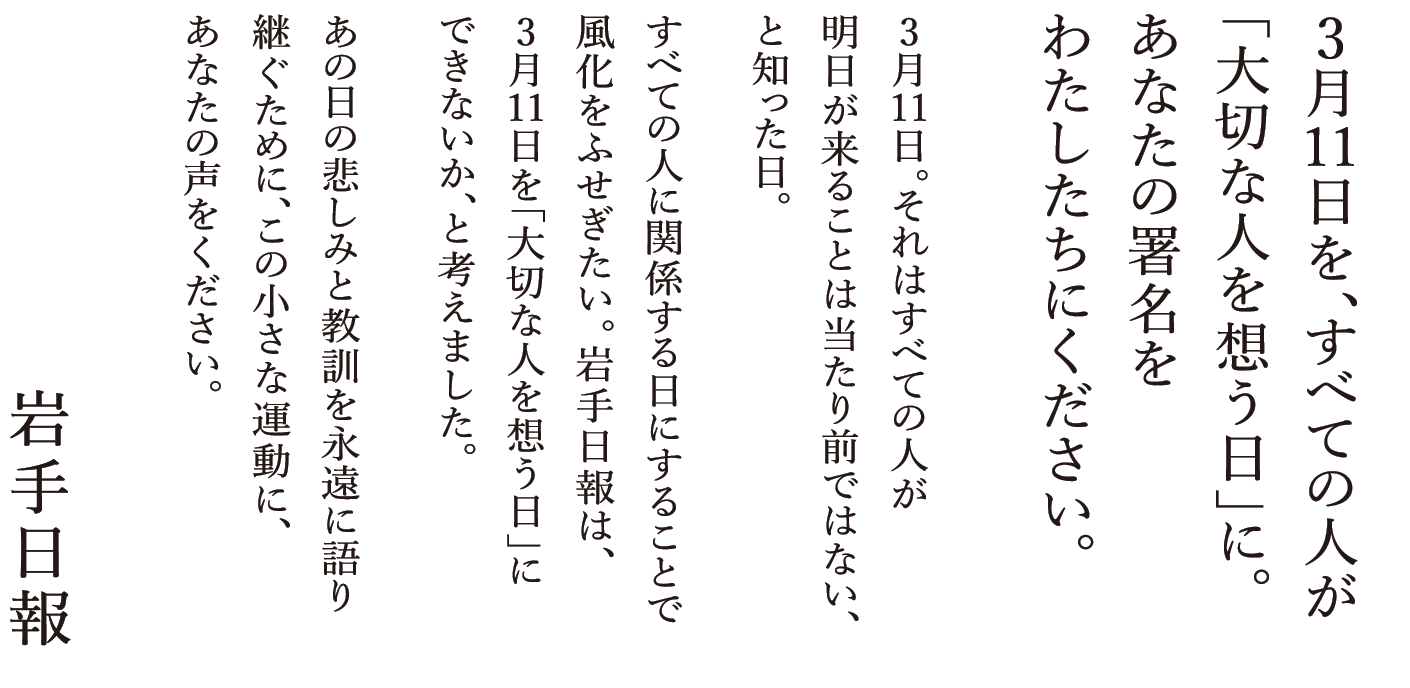 3月11日を、すべての人が
「大切な人を想う日」に。
あなたの署名を
わたしたちにください。
3月11日。それはすべての人が
明日が来ることは当たり前ではない、
と知った日。
すべての人に関係する日にすることで
風化をふせぎたい。岩手日報は、
3月11日を「大切な人を想う日」に
できないか、と考えました。
あの日の悲しみと教訓を永遠に語り
継ぐために、この小さな運動に、
あなたの声をください。
岩手日報